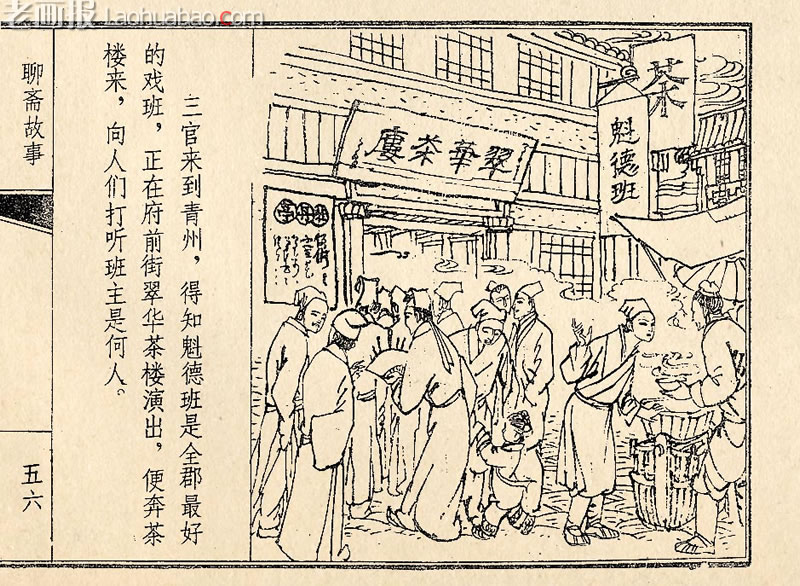 老画报 Laohuabao.com
聊斋故事
三官来到青州，得知魁德班是全郡最好
的戏班，正在府前街翠华茶楼演出，便奔茶
楼来，向人们打听班主是何人。
五六
翠華茶廔
茶
魁德班